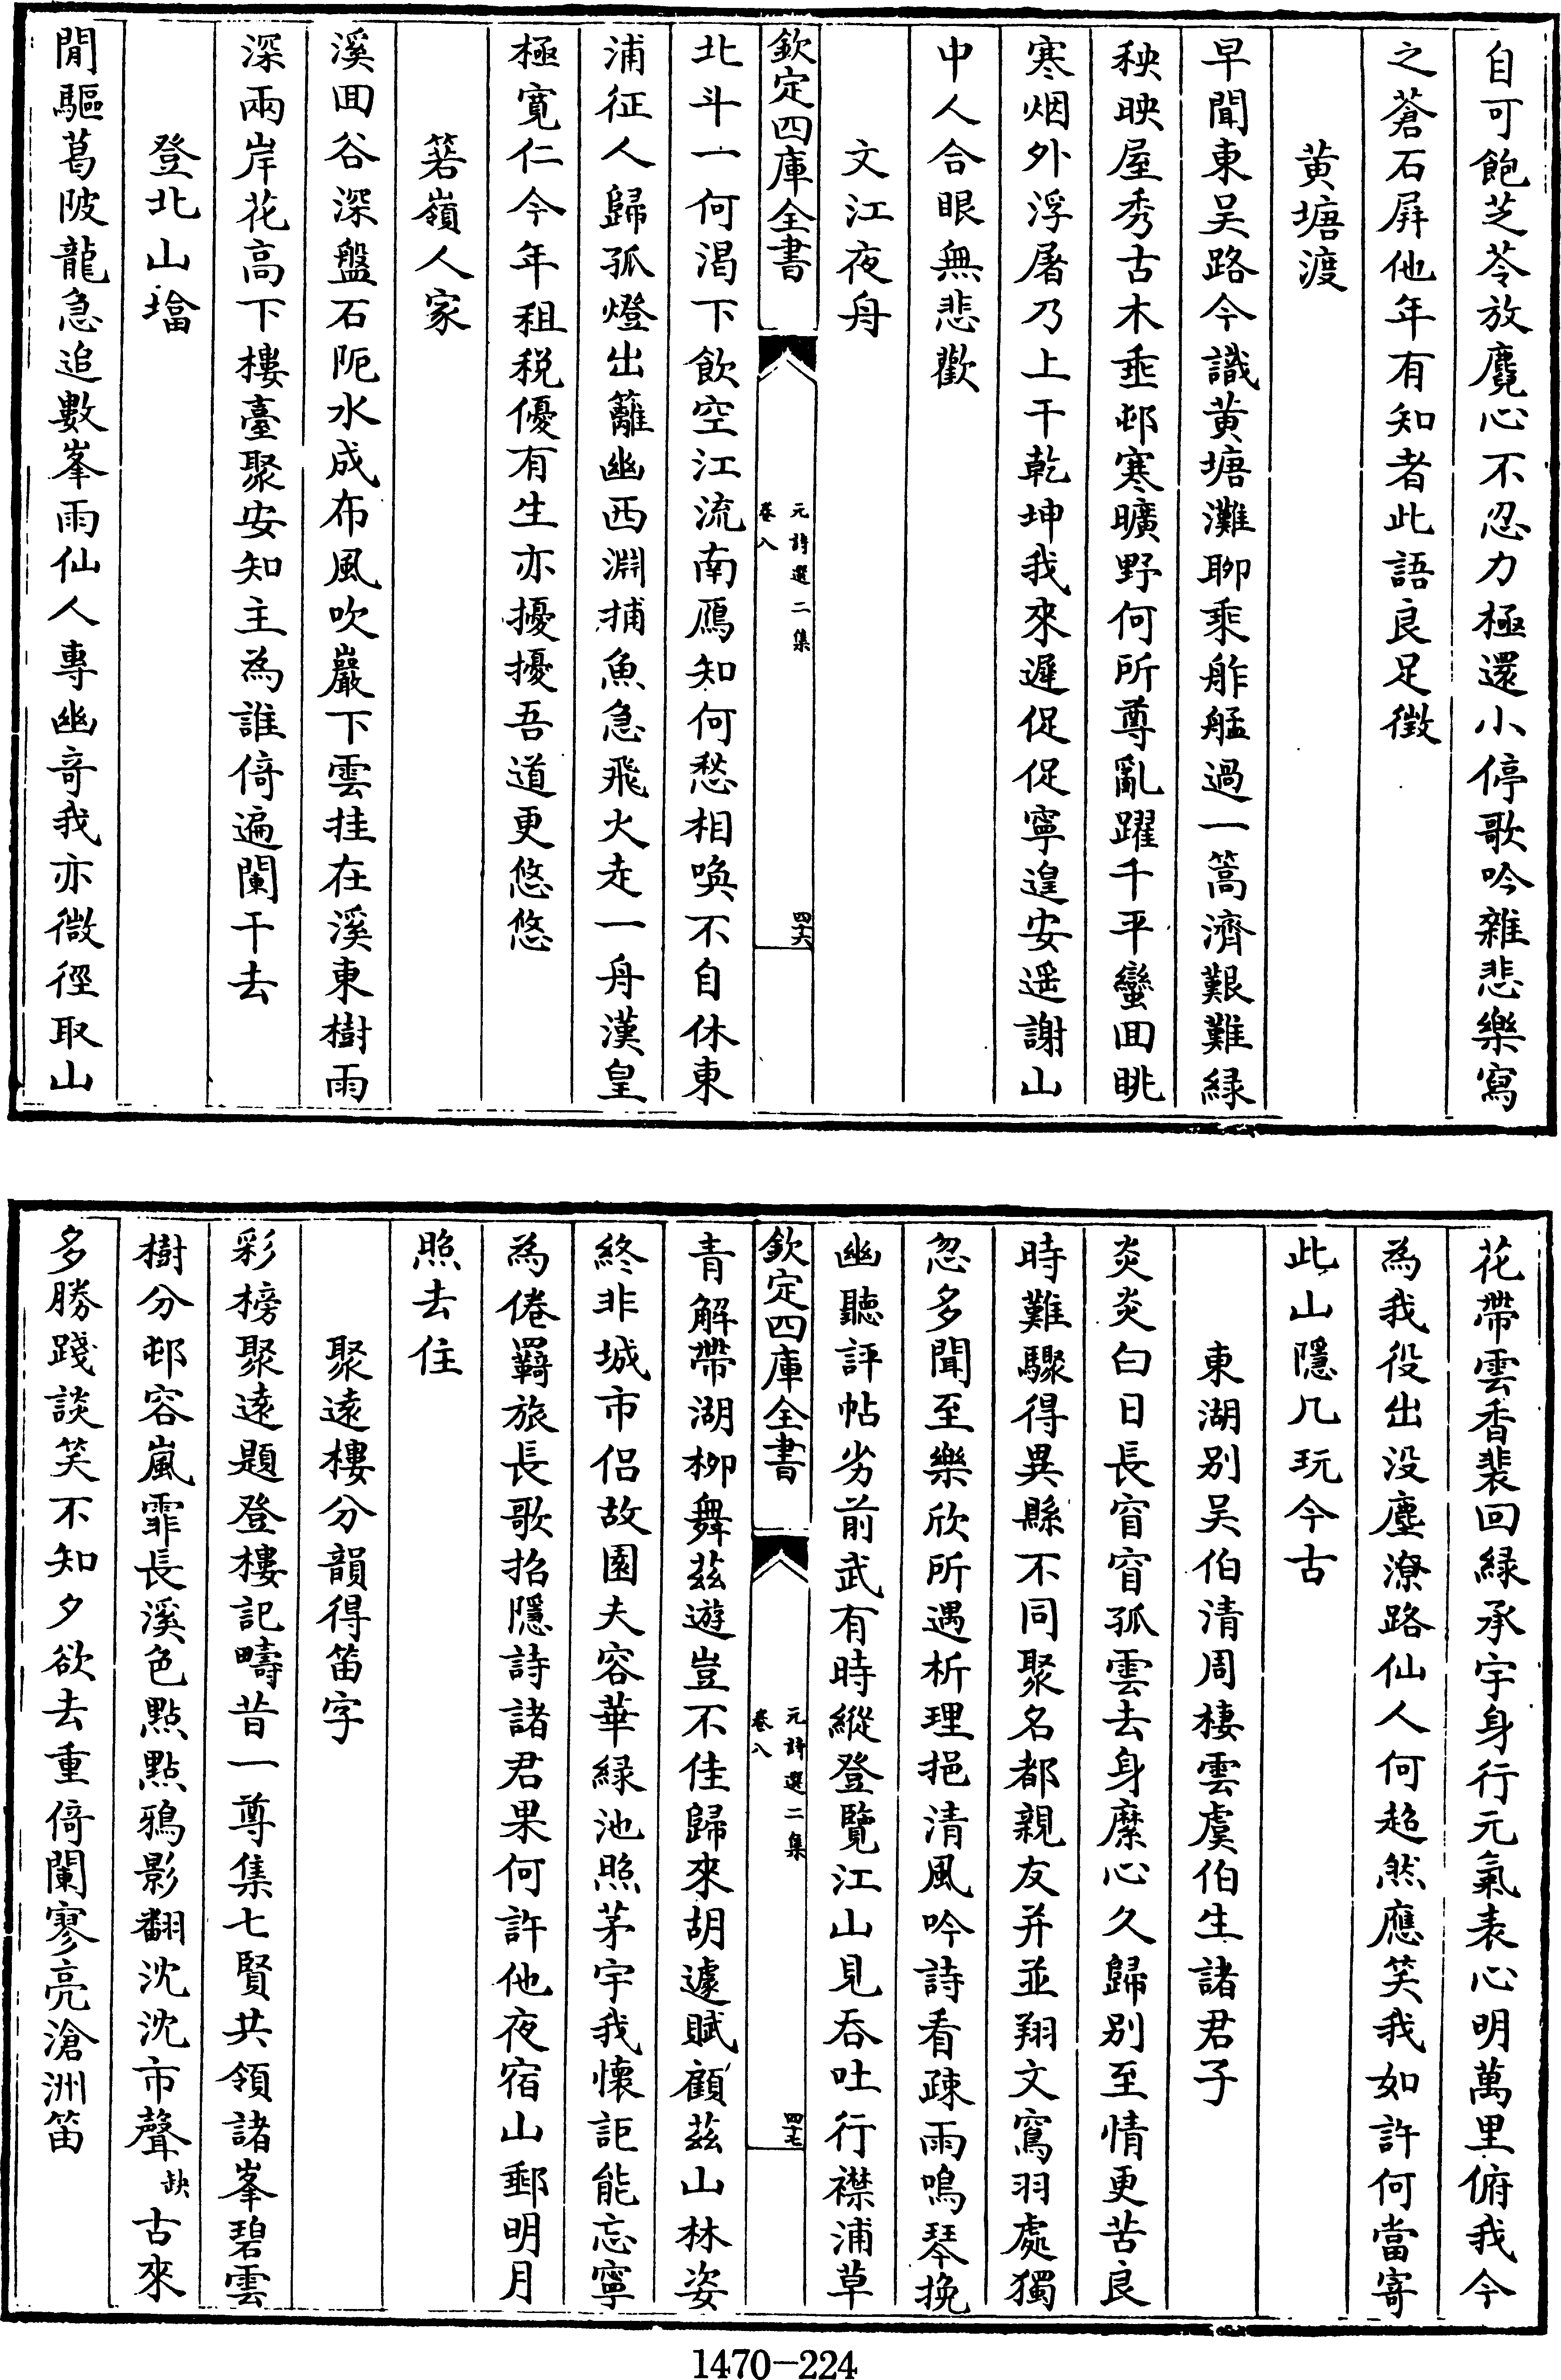 自可飽芝苓放麑心不忍力極還小停歌吟雜悲樂寫
之蒼石屛他年有知者此語良足徴
黄塘渡
早聞東吴路今識黄塘灘聊乘舴艋過一篙濟艱難緑
秧映屋秀古木垂邨寒曠野何所尊亂躍千平蠻囬眺
寒烟外浮屠乃上干乾坤我來遲促促寧遑安遥謝山
中人合眼無悲歡
文江夜舟
欽定四庫全書
元詩選二集
卷八
四十六
北斗一何渴下飲空江流南鴈知何愁相喚不自休東
浦征人歸孤燈出籬幽西淵捕魚急飛火走一舟漢皇
極寛仁今年租税優有生亦擾擾吾道更悠悠
箬嶺人家
溪囬谷深盤石阨水成布風吹巖下雲挂在溪東樹雨
深兩岸花高下樓臺聚安知主為誰倚遍闌干去
登北山壋
閒驅葛陂龍急追數峯雨仙人專幽竒我亦微徑取山
花帶雲香裴回緑承宇身行元氣表心明萬里俯我今
為我役出没塵潦路仙人何超然應笑我如許何當寄
此山隱几玩今古
東湖别吴伯清周棲雲虞伯生諸君子
炎炎白日長窅窅孤雲去身縻心久歸别至情更苦良
時難驟得異縣不同聚名都親友并並翔文窵羽處獨
忽多聞至樂欣所遇析理挹清風吟詩看疎雨鳴琴挽
幽聽評帖劣前武有時縱登覽江山見吞吐行襟浦草
欽定四庫全書
元詩選二集
卷八
四十七
青解帶湖栁舞兹遊豈不佳歸來胡遽賦顧兹山林姿
終非城市侣故園夫容華緑池照茅宇我懷詎能忘寧
為倦羇旅長歌招隱詩諸君果何許他夜宿山郵明月
照去住
聚遠樓分韻得笛字
彩榜聚遠題登樓記疇昔一尊集七賢共領諸峯碧雲
樹分邨容嵐霏長溪色點點鴉影翻沈沈市聲缺古來
多勝踐談笑不知夕欲去重倚闌寥亮滄洲笛
1470-224